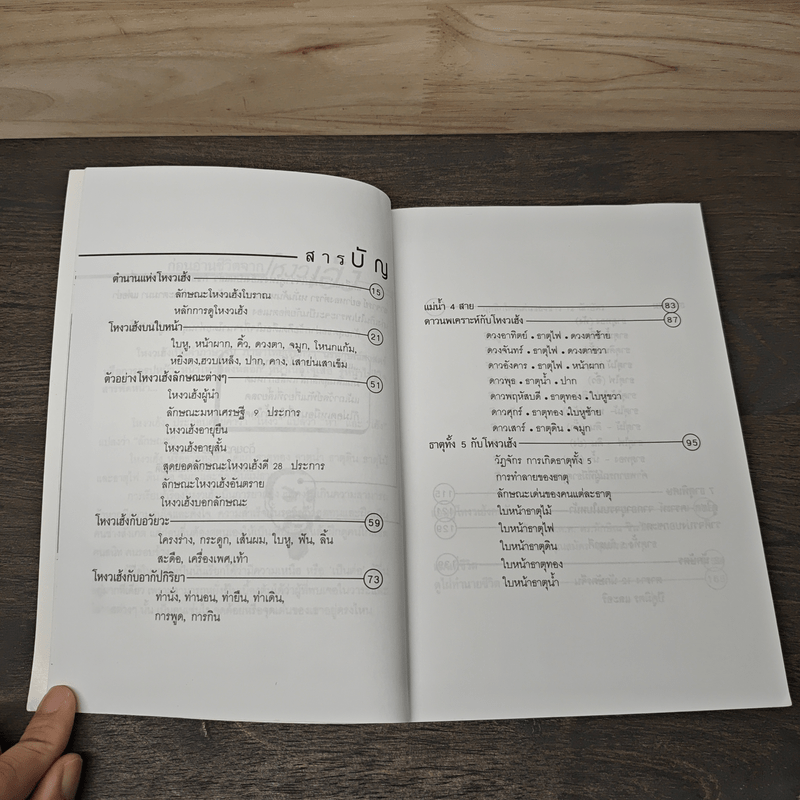 สารบัญ
ตำนานแห่งโหงวเฮ้ง 15
ลักษณะโหงวเฮ้งโบราณ
หลักการดูโหงวเฮ้ง
โหงวเฮ้งบนใบหน้า 21
ใบหู, หน้าผาก, คิ้ว, ดวงตา, จมูก, โหนกแก้ม,
หยิ่งตง,ฮวบเหล็ง, ปาก, คาง, เสาย่นเสาเข็ม
ตัวอย่างโหงวเฮ้งลักษณะต่างๆ 51
โหงวเฮ้งผู้นำ
ลักษณะมหาเศรษฐี 9 ประการ
โหงวเฮ้งอายุยืน
โหงวเฮ้งอายุสั้น
สุดยอดลักษณะโหงวเฮ้งดี 28 ประการ
ลักษณะโหงวเฮ้งอันตราย
โหงวเฮ้งบอกลักษณะ
โหงวเฮ้งกับอวัยวะ 59
โครงร่าง, กระดูก, เส้นผม, ใบหู, ฟัน, ลิ้น
สะดือ, เครื่องเพศ,เท้า
โหงวเฮ้งกับอากัปกิริยา 73
ท่านั่ง, ท่านอน, ท่ายืน, ท่าเดิน,
การพูด, การกิน
แม่น้ำ 4 สาย 83
ดาวนพเคราะห์กับโหงวเฮ้ง 87
ดวงอาทิตย์ • ธาตุไฟ • ดวงตาซ้าย
ดวงจันทร์ • ธาตุไฟ • ดวงตาขวา
ดาวอังคาร • ธาตุไฟ • หน้าผาก
ดาวพุธ • ธาตุน้ำ • ปาก
ดาวพฤหัสบดี • ธาตุทอง • ใบหูขวา
ดาวศุกร์ • ธาตุทอง •ใบหูซ้าย
ดาวเสาร์ • ธาตุดิน • จมูก
ธาตุทั้ง 5 กับโหงวเฮ้ง 95
วัฏจักร การเกิดธาตุทั้ง 5
การทำลายของธาตุ
ลักษณะเด่นของคนแต่ละธาตุ
ใบหน้าธาตุไม้
ใบหน้าธาตุไฟ
ใบหน้าธาตุดิน
ใบหน้าธาตุทอง
ใบหน้าธาตุน้ำ